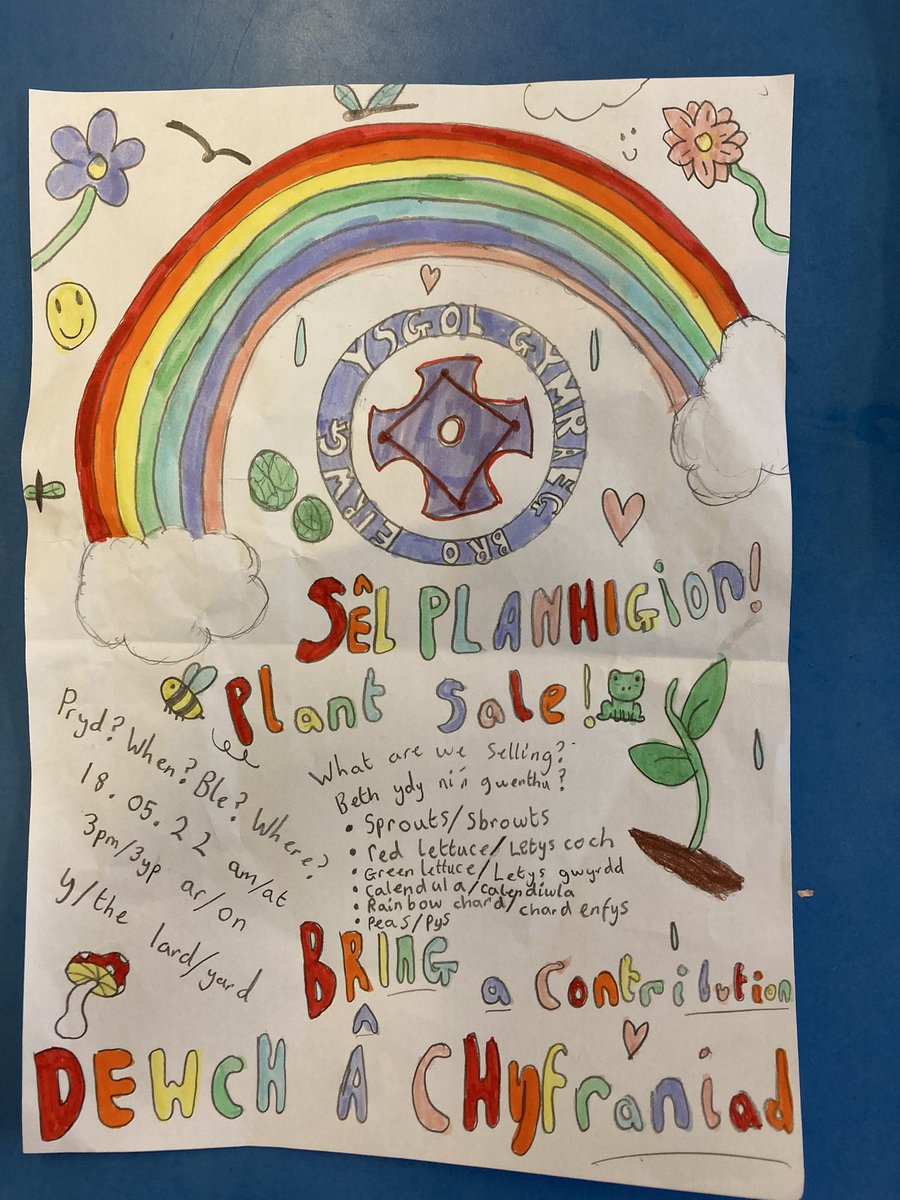 YSGOL GYMRAEG BRO EIRWG
SÊL PLANHIGION!
Plant Sale!
Pryd? When? Ble? Where?
18.05.22 am/at
3pm/3yp ar/on
y/the Iard/yard
What are we selling?
Beth ydy ni'n gwerthu?
• Sprouts/Sbrowts
• red lettuce/Letys coch
• Green lettuce/Letys gwyrdd
• Calendula/calendiwla
• Rainbow chard/chard enfys
• Peas/Pys
BRING a Contribution
DEWCH Â CHyfraniad